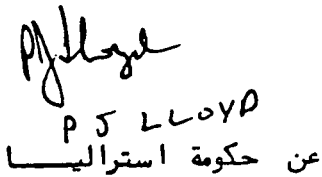 PJ Lloyd
P J LLOYD
عن حكومة استراليا